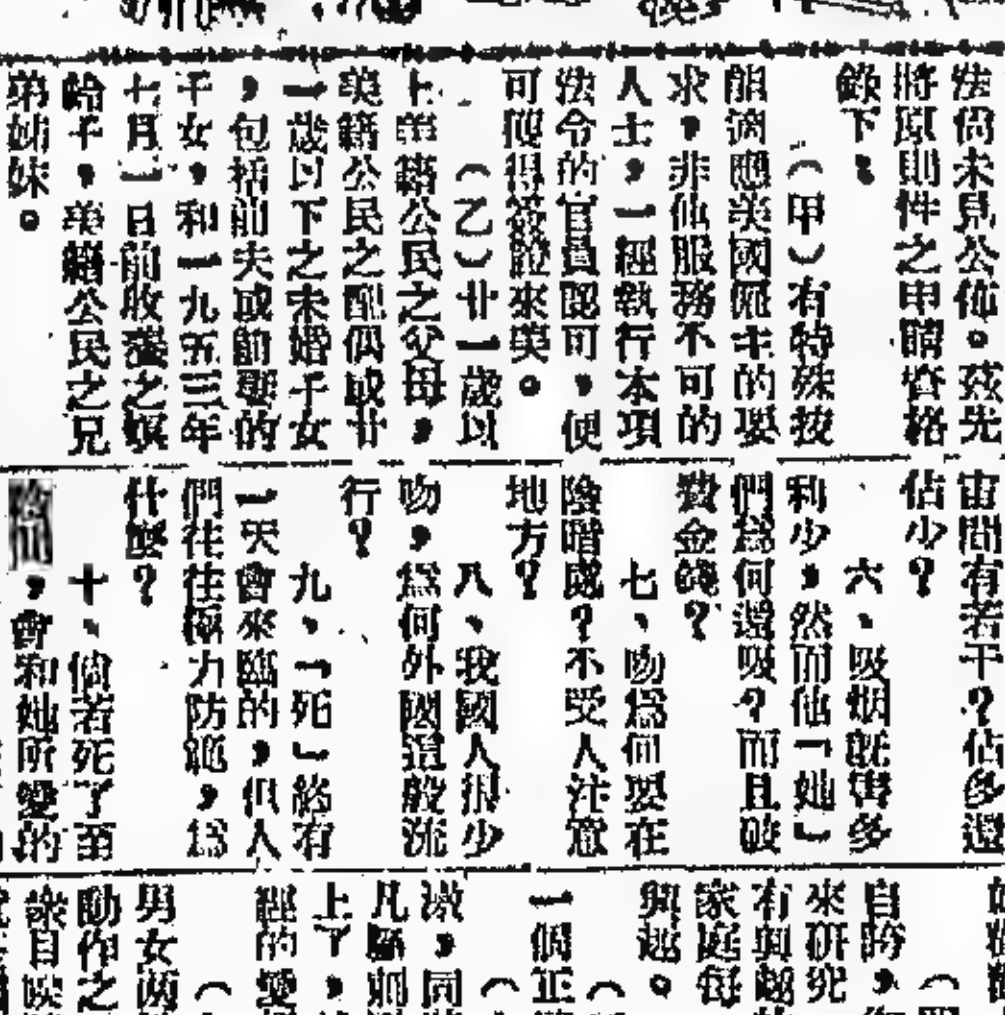 法尚未見公佈。茲先
將原則性之申請資格
錄下：
（甲）有特殊技
能適應美國僱主的要
求，非他服務不可的
人士，一經執行本項
法令的官員認可，便
可獲得簽證來美。
（乙）廿一歲以
上美籍公民之父母，
美籍公民之配偶或廿
一歲以下之未婚子女
，包括前夫或前妻的
子女，和一九五三年
七月一日前收養之嫫
給子，美籍公民之兄
弟姊妹。
宙間有若干？佔多還
佔少？
六、吸烟既害多
利少，然而他「她」
們爲何還吸？而且破
費金錢？
七、吻爲何要在
陰暗處？不受人注意
地方？
八、我國人很少
吻，爲何外國這般流
行？
九，「死」終有
一天會來臨的，但人
們往往極力防範，爲
什麼？
十、倘若死了至
陰間，會和她所愛的
自誇，
來研究
有興趣
家庭每
興趣。
一個正
激，同
凡屬刺
上了，
經的愛
男女兩
動作之
衆目睽